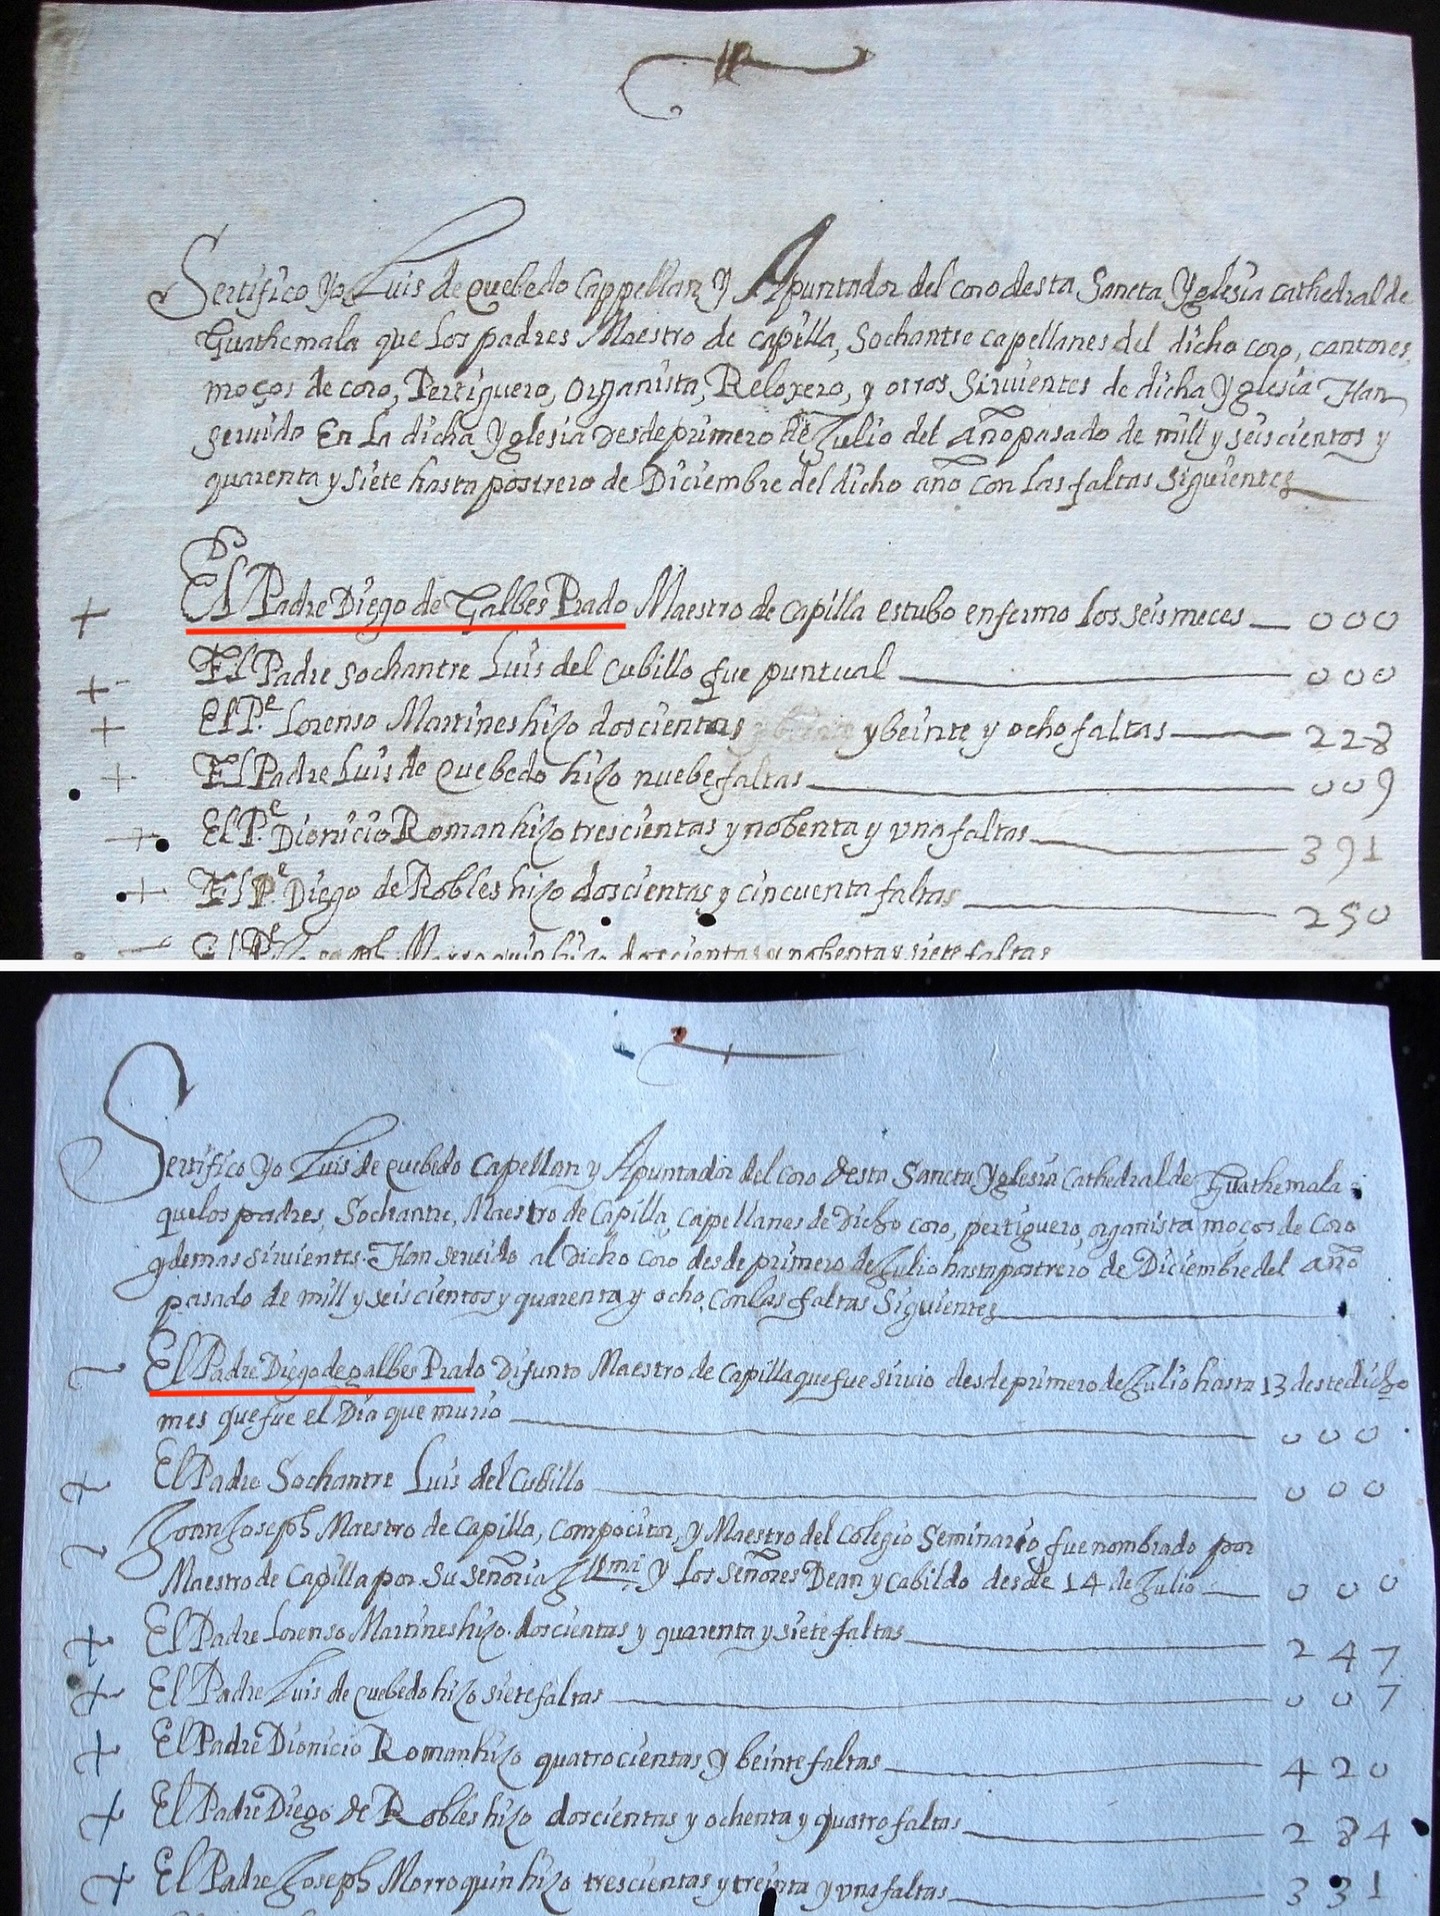 Sertifico Yo Luis de Quebedo Cappellan y Apuntador del coro desta Sancta Yglesia cathedral de
Guathemala que Los padres Maestro de capilla, Sochantre capellanes del dicho coro, cantores,
moços de coro, Pertiguero, Organista, Reloxero, y otros Siruientes de dicha Yglesia Han
seruido En La dicha Yglesia Desde primero de Julio del Año pasado de mill y seiscientos y
quarenta y siete hasta postrero de Diciembre del dicho año con Las faltas Siguientes
El Padre Diego de Galbes Prado Maestro de capilla estubo enfermo Los seis meces 000
El Padre sochantre Luis del Cubillo fue puntual 000
El Pe. Lorenso Martines hizo doscientas y beinte y ocho faltas 228
El Padre Luis de Quebedo hizo nuebe faltas 009
El Pe. Dionicio Roman hizo trescientas y nobenta y vna faltas 391
El Pe. Diego de Robles hizo doscientas y cincuenta faltas 250
El Pe. Joseph Morroquin hizo doscientas y nobenta y siete faltas
Sertifico Yo Luis de Quebedo Capellan y Apuntador del coro desta Sancta Yglesia Cathedral de Guathemala
que los padres, Sochantre, Maestro de Capilla, capellanes de Dicho coro, pertiguero, organista moços de Coro
y demas siruientes. Han seruido al Dicho coro desde primero de Julio hasta postrero de Diciembre del año
pasado de mill y seiscientos y quarenta y ocho, con Las faltas Siguientes
El Padre Diego de galbes Prado Difunto Maestro de Capilla que fue siruio desde primero de Julio hasta 13 deste dicho
mes que fue el Dia que murio 000
El Padre Sochantre Luis del Cubillo 000
Joan Joseph Maestro de Capilla, compocitor, y Maestro del Colegio Seminario fue nombrado por
Maestro de Capilla por Su Señoria Illma. y Los Señores Dean y Cabildo desde 14 de Julio 000
El Padre Lorenso Martines hizo doscientas y quarenta y siete faltas 247
El Padre Luis de Quebedo hizo siete faltas 007
El Padre Dionicio Roman hizo quatrocientas y beinte faltas 420
El Padre Diego de Robles hizo doscientas y ochenta y quatro faltas 284
El Padre Joseph Morroquin hizo trescientas y treinta y vna faltas 331